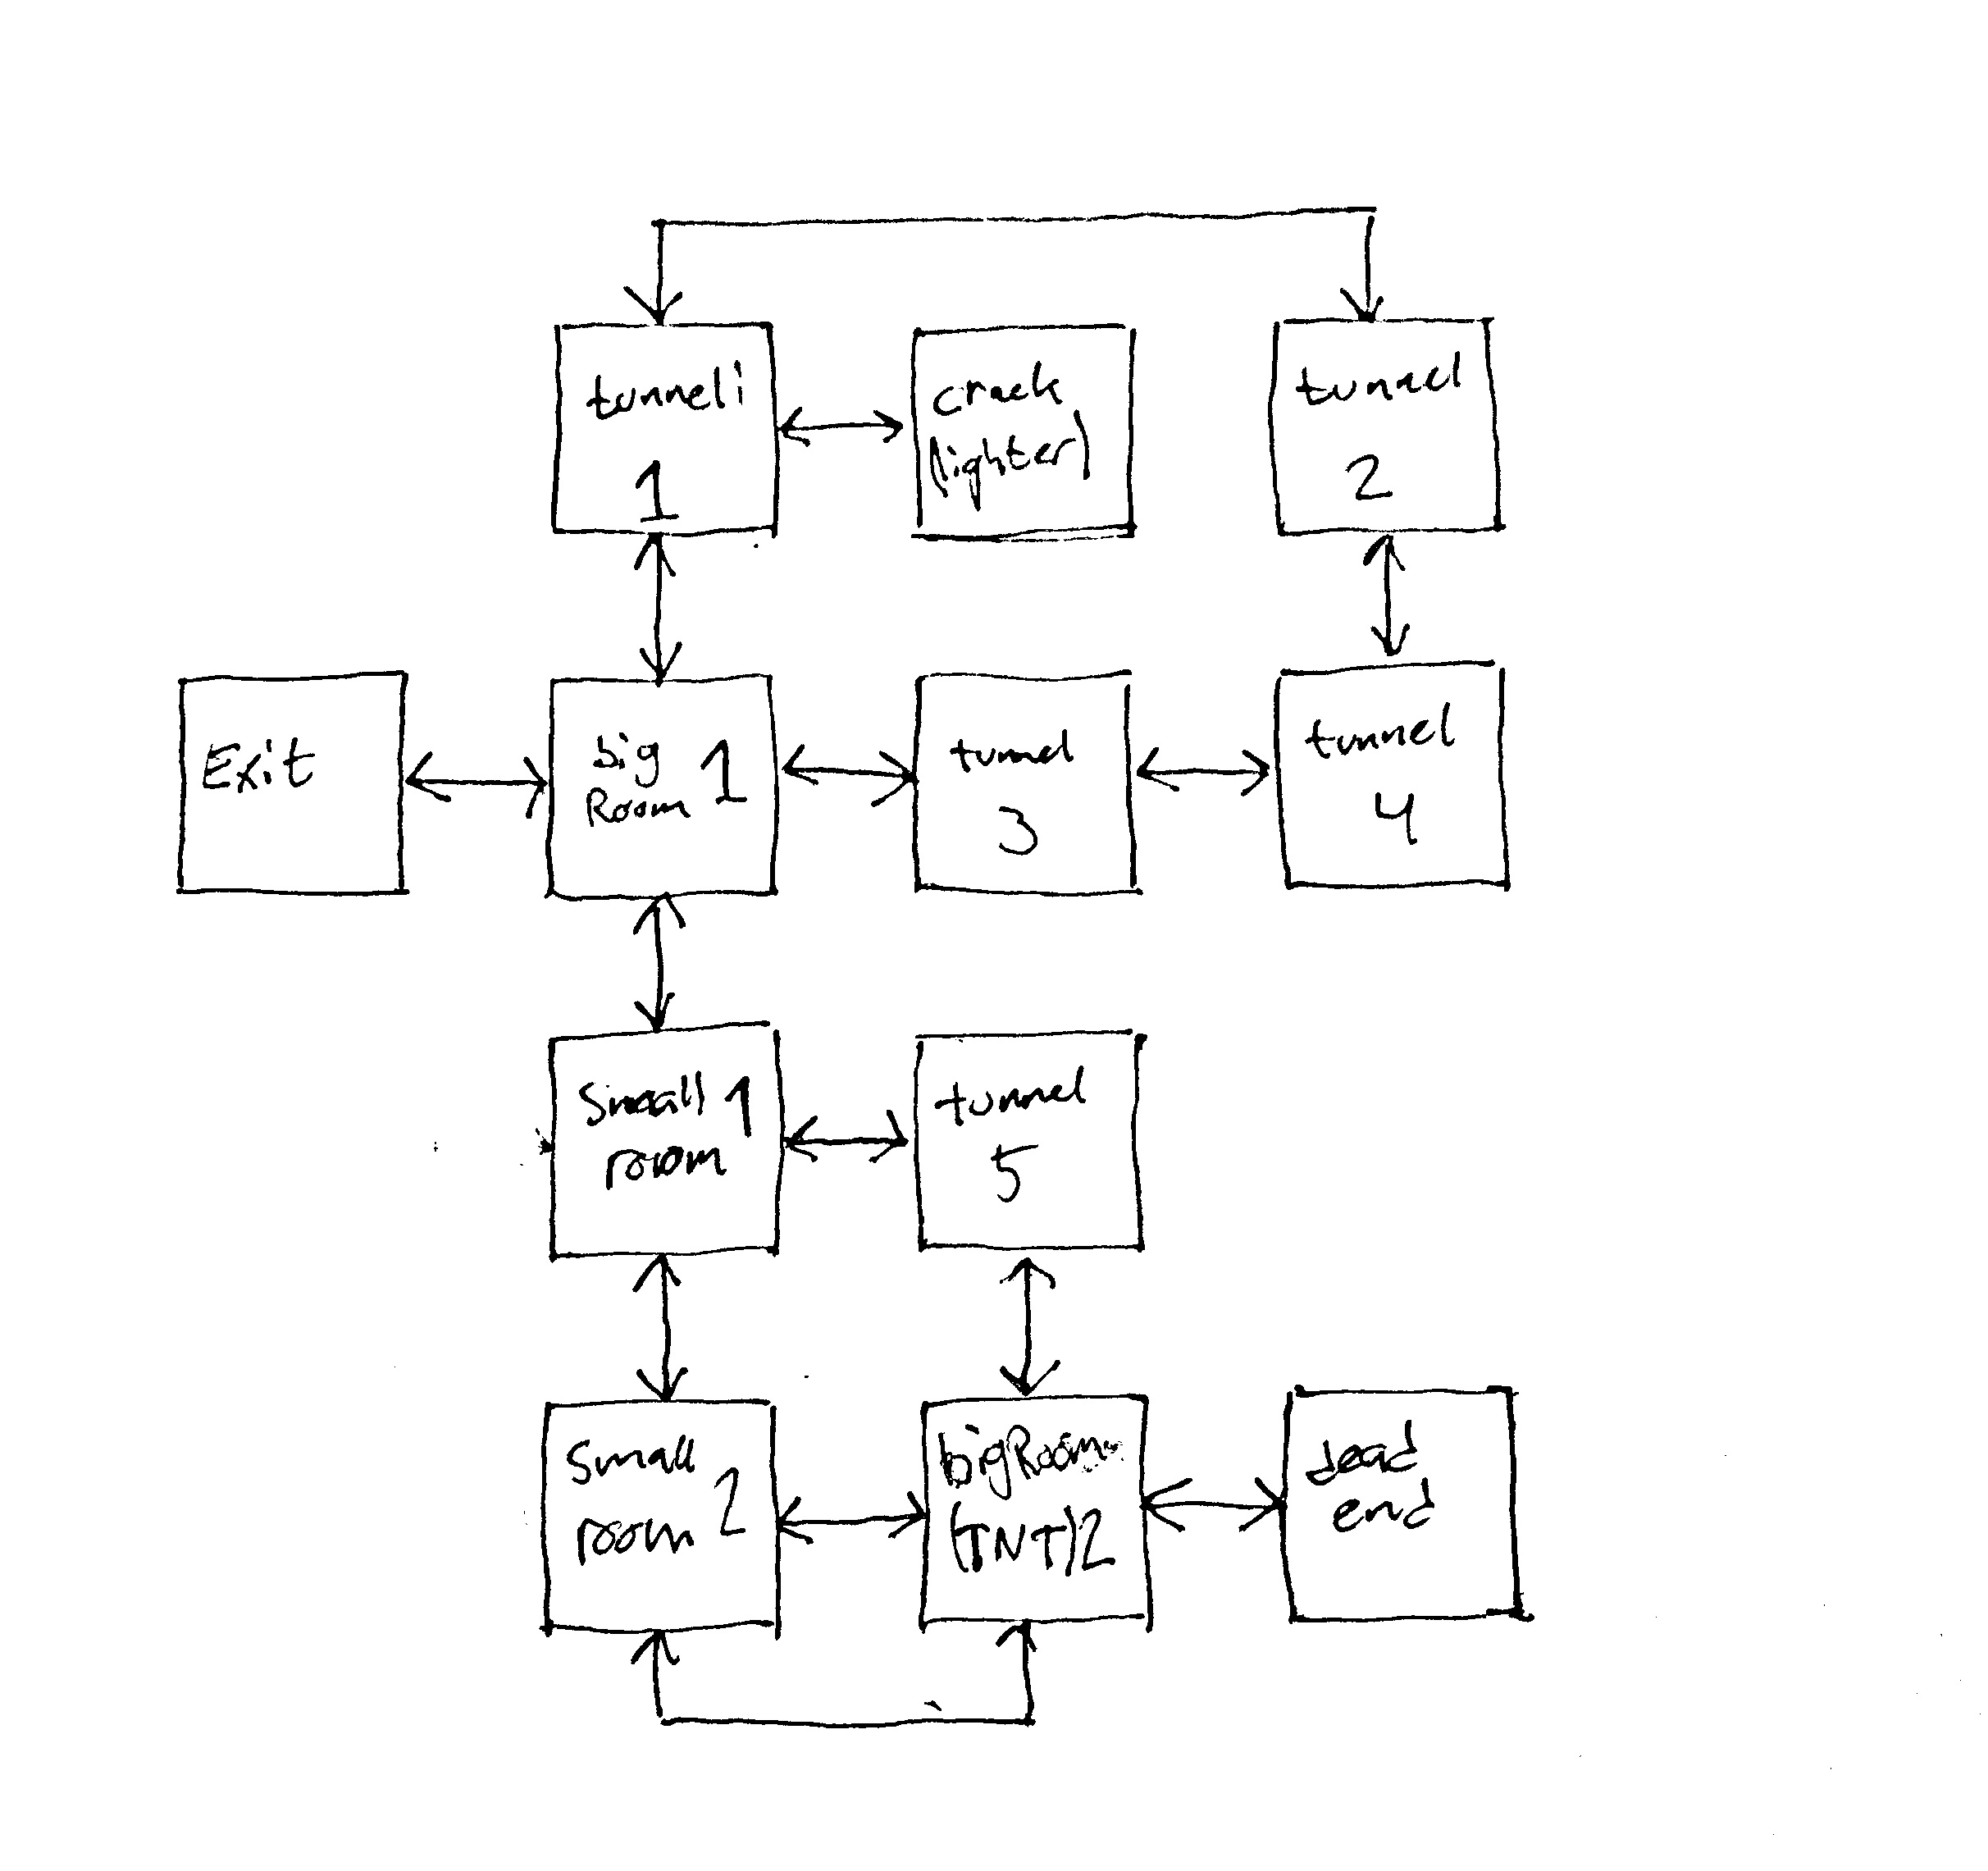 tunneli
1
crack
(lighter)
tunnel
2
Exit
big
Room 1
tunnel
3
tunnel
4
small 1
room
tunnel
5
small
room 2
bigRoom
(TNT)2
dead
end